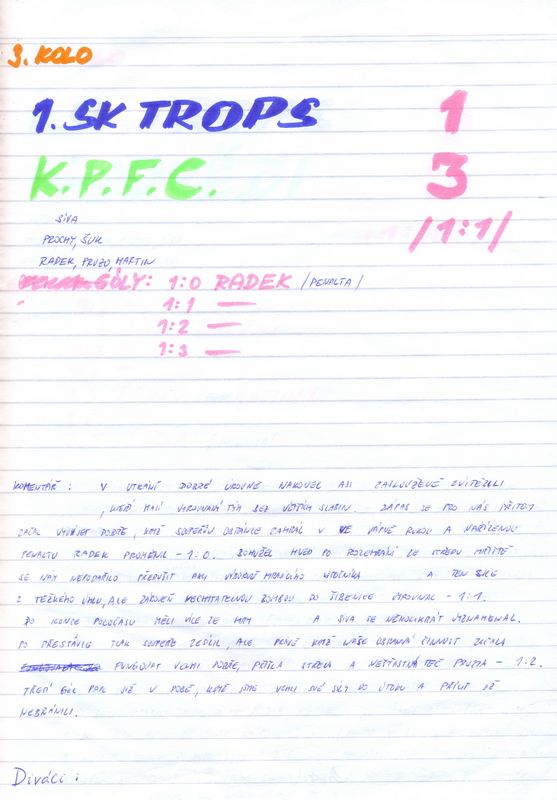 3. KOLO
1. SK TROPS 1
K.P.F.C. 3
SÍVA /1:1/
PROCHY, ŠUK
RADEK, PRUZO, MARTIN
GÓLY: 1:0 RADEK /PENALTA/
1:1 —
1:2 —
1:3 —
KOMENTÁŘ: V UTKÁNÍ DOBRÉ ÚROVNĚ NAKONEC ASI ZASLOUŽENĚ ZVÍTĚZILI
, KTEŘÍ MAJÍ VYROVNANÝ TÝM BEZ VĚTŠÍCH SLABIN. ZÁPAS SE PRO NÁS PŘITOM
ZAČAL VYVÍJET DOBŘE, KDYŽ SOUPEŘŮV OBRÁNCE ZAHRÁL V VÁPNĚ RUKOU A NAŘÍZENOU
PENALTU RADEK PROMĚNIL - 1:0. BOHUŽEL HNED PO ROZEHRÁNÍ ZE STŘEDU HŘIŠTĚ
SE NÁM NEPODAŘILO PŘERUŠIT AKCI VÝBORNĚ HRAJÍCÍHO ÚTOČNÍKA A TEN SICE
Z TĚŽKÉHO ÚHLU, ALE ZÁROVEŇ NECHYTATELNOU BOMBOU DO ŠIBENICE VYROVNAL - 1:1.
DO KONCE POLOČASU MĚLI VÍCE ZE HRY A SÍVA SE NĚKOLIKRÁT VYZNAMENAL.
PO PŘESTÁVCE TLAK SOUPEŘE ZESÍLIL, ALE PRÁVĚ KDYŽ NAŠE OBRANNÁ ČINNOST ZAČALA
FUNGOVAT VELMI DOBŘE, PŘIŠLA STŘELA A NEŠŤASTNÁ TEČ PRUZA - 1:2.
TŘETÍ GÓL PADL JIŽ V DOBĚ, KDY JSME VRHLI SVÉ SÍLY DO ÚTOKU A PŘÍLIŠ JIŽ
NEBRÁNILI.
Diváci: